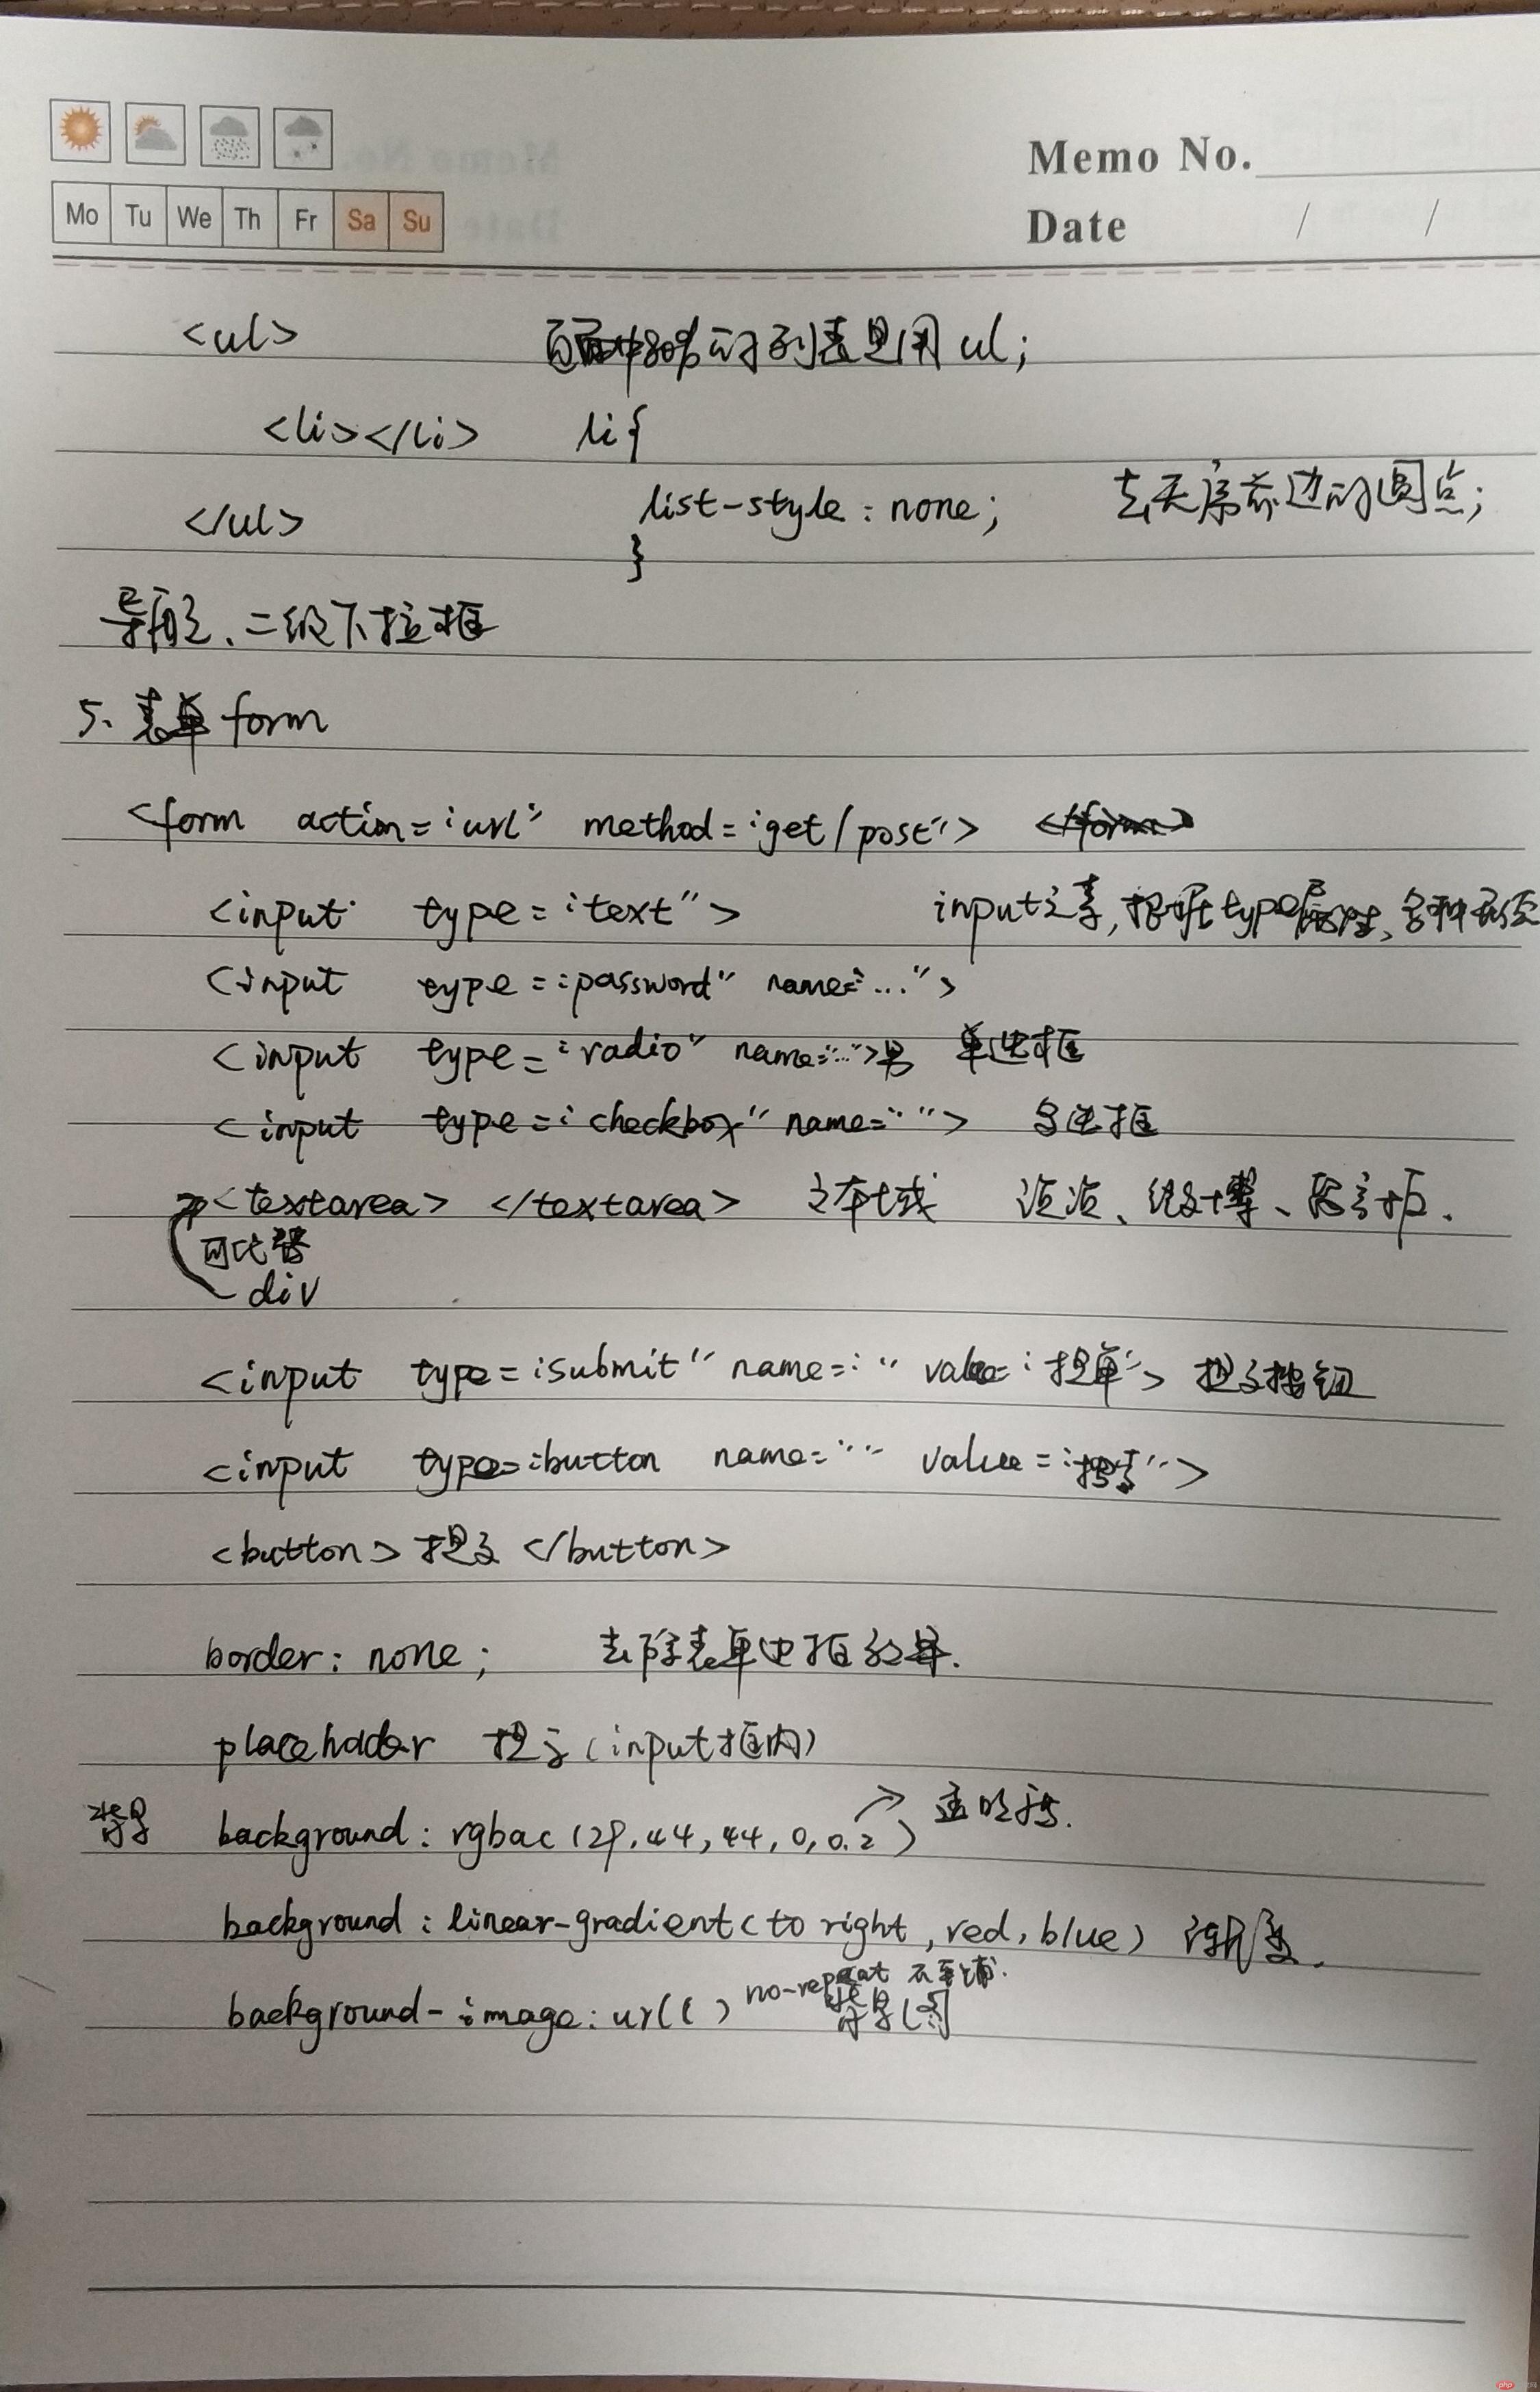 Memo No.
Mo Tu We Th Fr Sa Su
Date / /
<ul> 页面中80%的列表是用ul;
<li></li> li{
</ul> list-style:none; 去无序前边的圆点;
}
导航、二级下拉框
5、表单form
<form action="url" method="get/post">
<input type="text"> input元素,根据type属性,多种
<input type="password" name="...">
<input type="radio" name="...">男 单选框
<input type="checkbox" name=""> 多选框
<textarea> </textarea> 文本域 微博、
可代替
div
<input type="submit" name="" value="提单"> 提交按钮
<input type=:button name="" value="提交">
<button>提交</button>
border: none; 去除表单边框效果.
placeholder 提示(input框内)
背景 background: rgbac(29,44,44,0,0.2) 透明
background: linear-gradient(to right, red, blue) 渐变.
no-repeat 不平铺.
background-image: url() 背景图
php